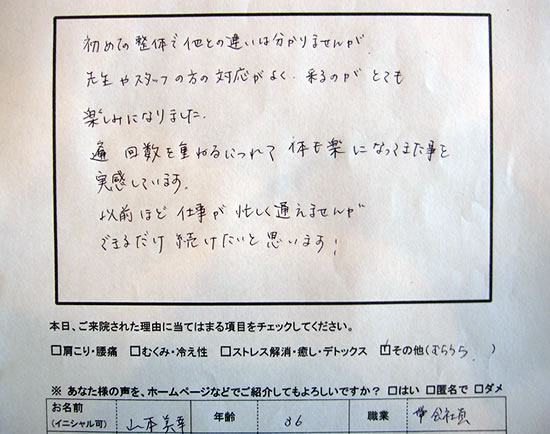 初めての整体で他との違いは分かりませんが
先生やスタッフの方の対応がよく、来るのがとても
楽しみになりました。
通 回数を重ねるにつれて 体も楽になってきた事を
実感しています。
以前ほど仕事が忙しく通えませんが
できるだけ続けたいと思います!
本日、ご来院された理由に当てはまる項目をチェックしてください。
□肩こり・腰痛 □むくみ・冷え性 □ストレス解消・癒し・デトックス ☑その他(むちうち )
※ あなた様の声を、ホームページなどでご紹介してもよろしいですか? □はい □匿名で □ダメ
お名前 (イニシャル可) 山本美幸 年齢 36 職業 会社員